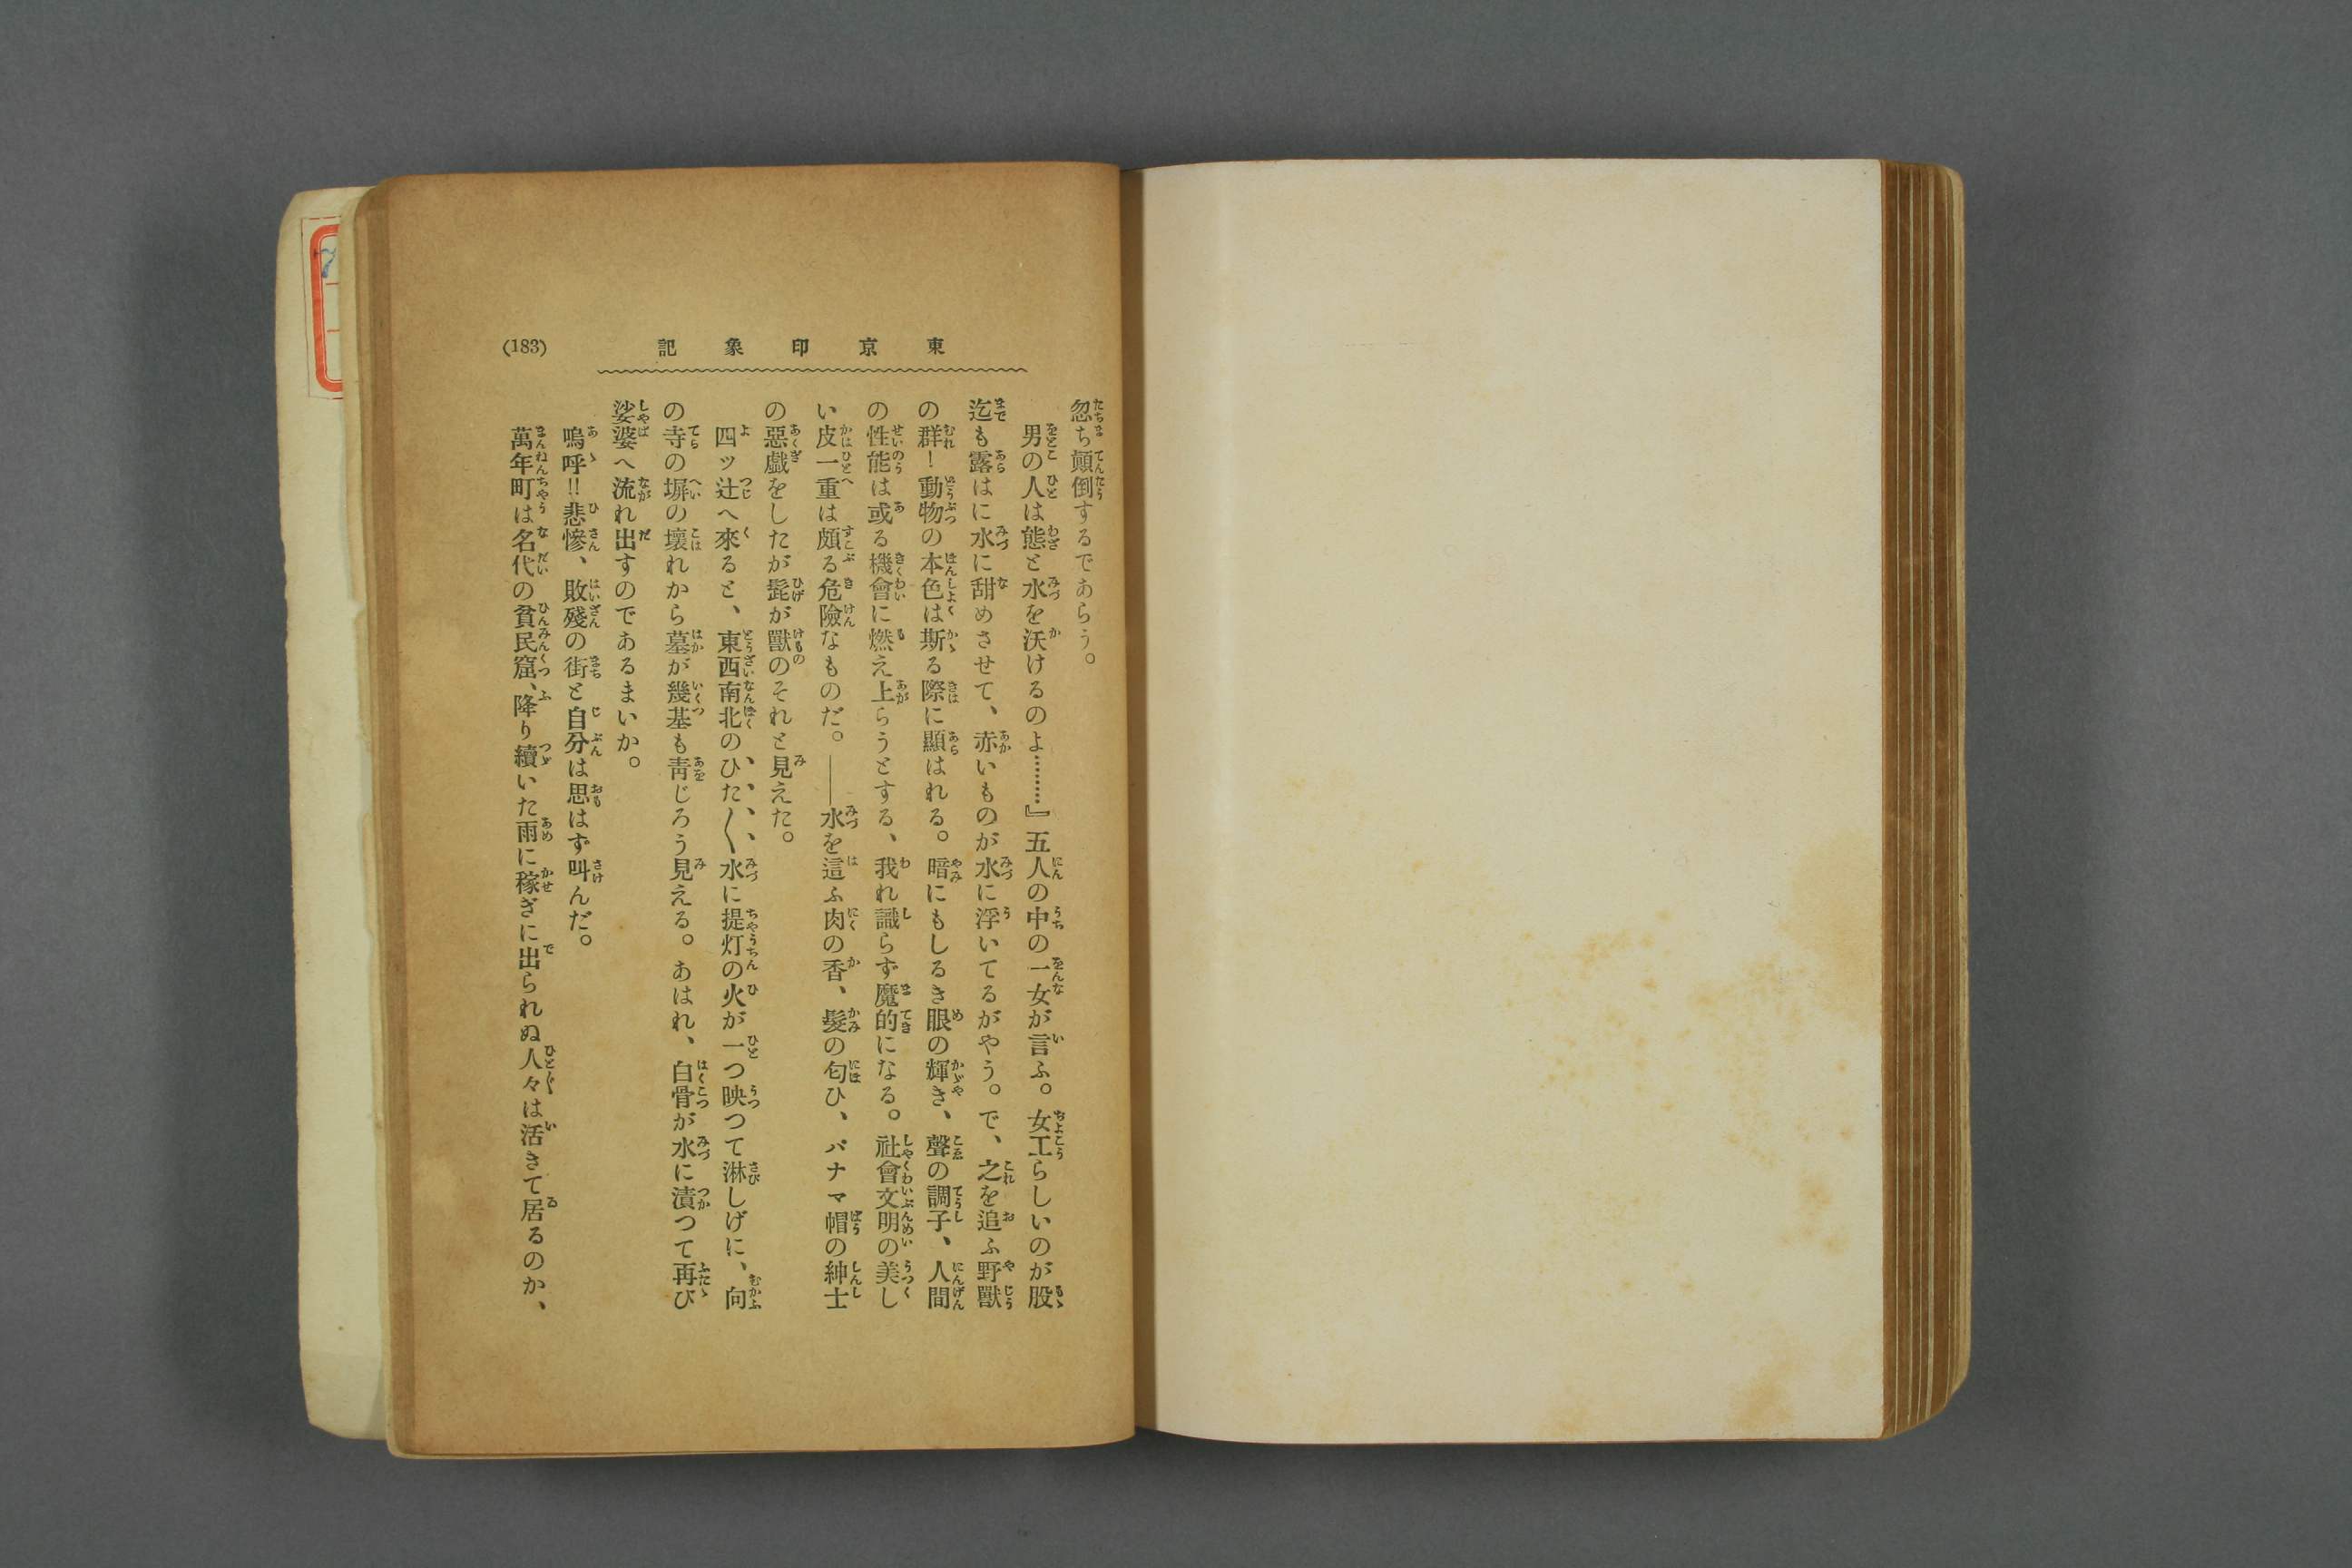 東京印象記
(183)
忽ち顛倒するであらう。
男の人は態と水を沃けるのよ………』五人の中の一女が言ふ。女工らしいのが股
迄も露はに水に甜めさせて、赤いものが水に浮いてるがやう。で、之を追ふ野獸
の群！動物の本色は斯る際に顯はれる。暗にもしるき眼の輝き、聲の調子、人間
の性能は或る機會に燃え上らうとする、我れ識らず魔的になる。社會文明の美し
い皮一重は頗る危險なものだ。――水を這ふ肉の香、髮の匂ひ、パナマ帽の紳士
の惡戲をしたが髭が獸のそれと見えた。
四ッ辻へ來ると、東西南北のひた〱水に提灯の火が一つ映つて淋しげに、向
の寺の塀の壞れから墓が幾基も靑じろう見える。あはれ、白骨が水に漬つて再び
娑婆へ流れ出すのであるまいか。
嗚呼‼悲慘、敗殘の街と自分は思はず叫んだ。
萬年町は名代の貧民窟、降り續いた雨に稼ぎに出られぬ人々は活きて居るのか、